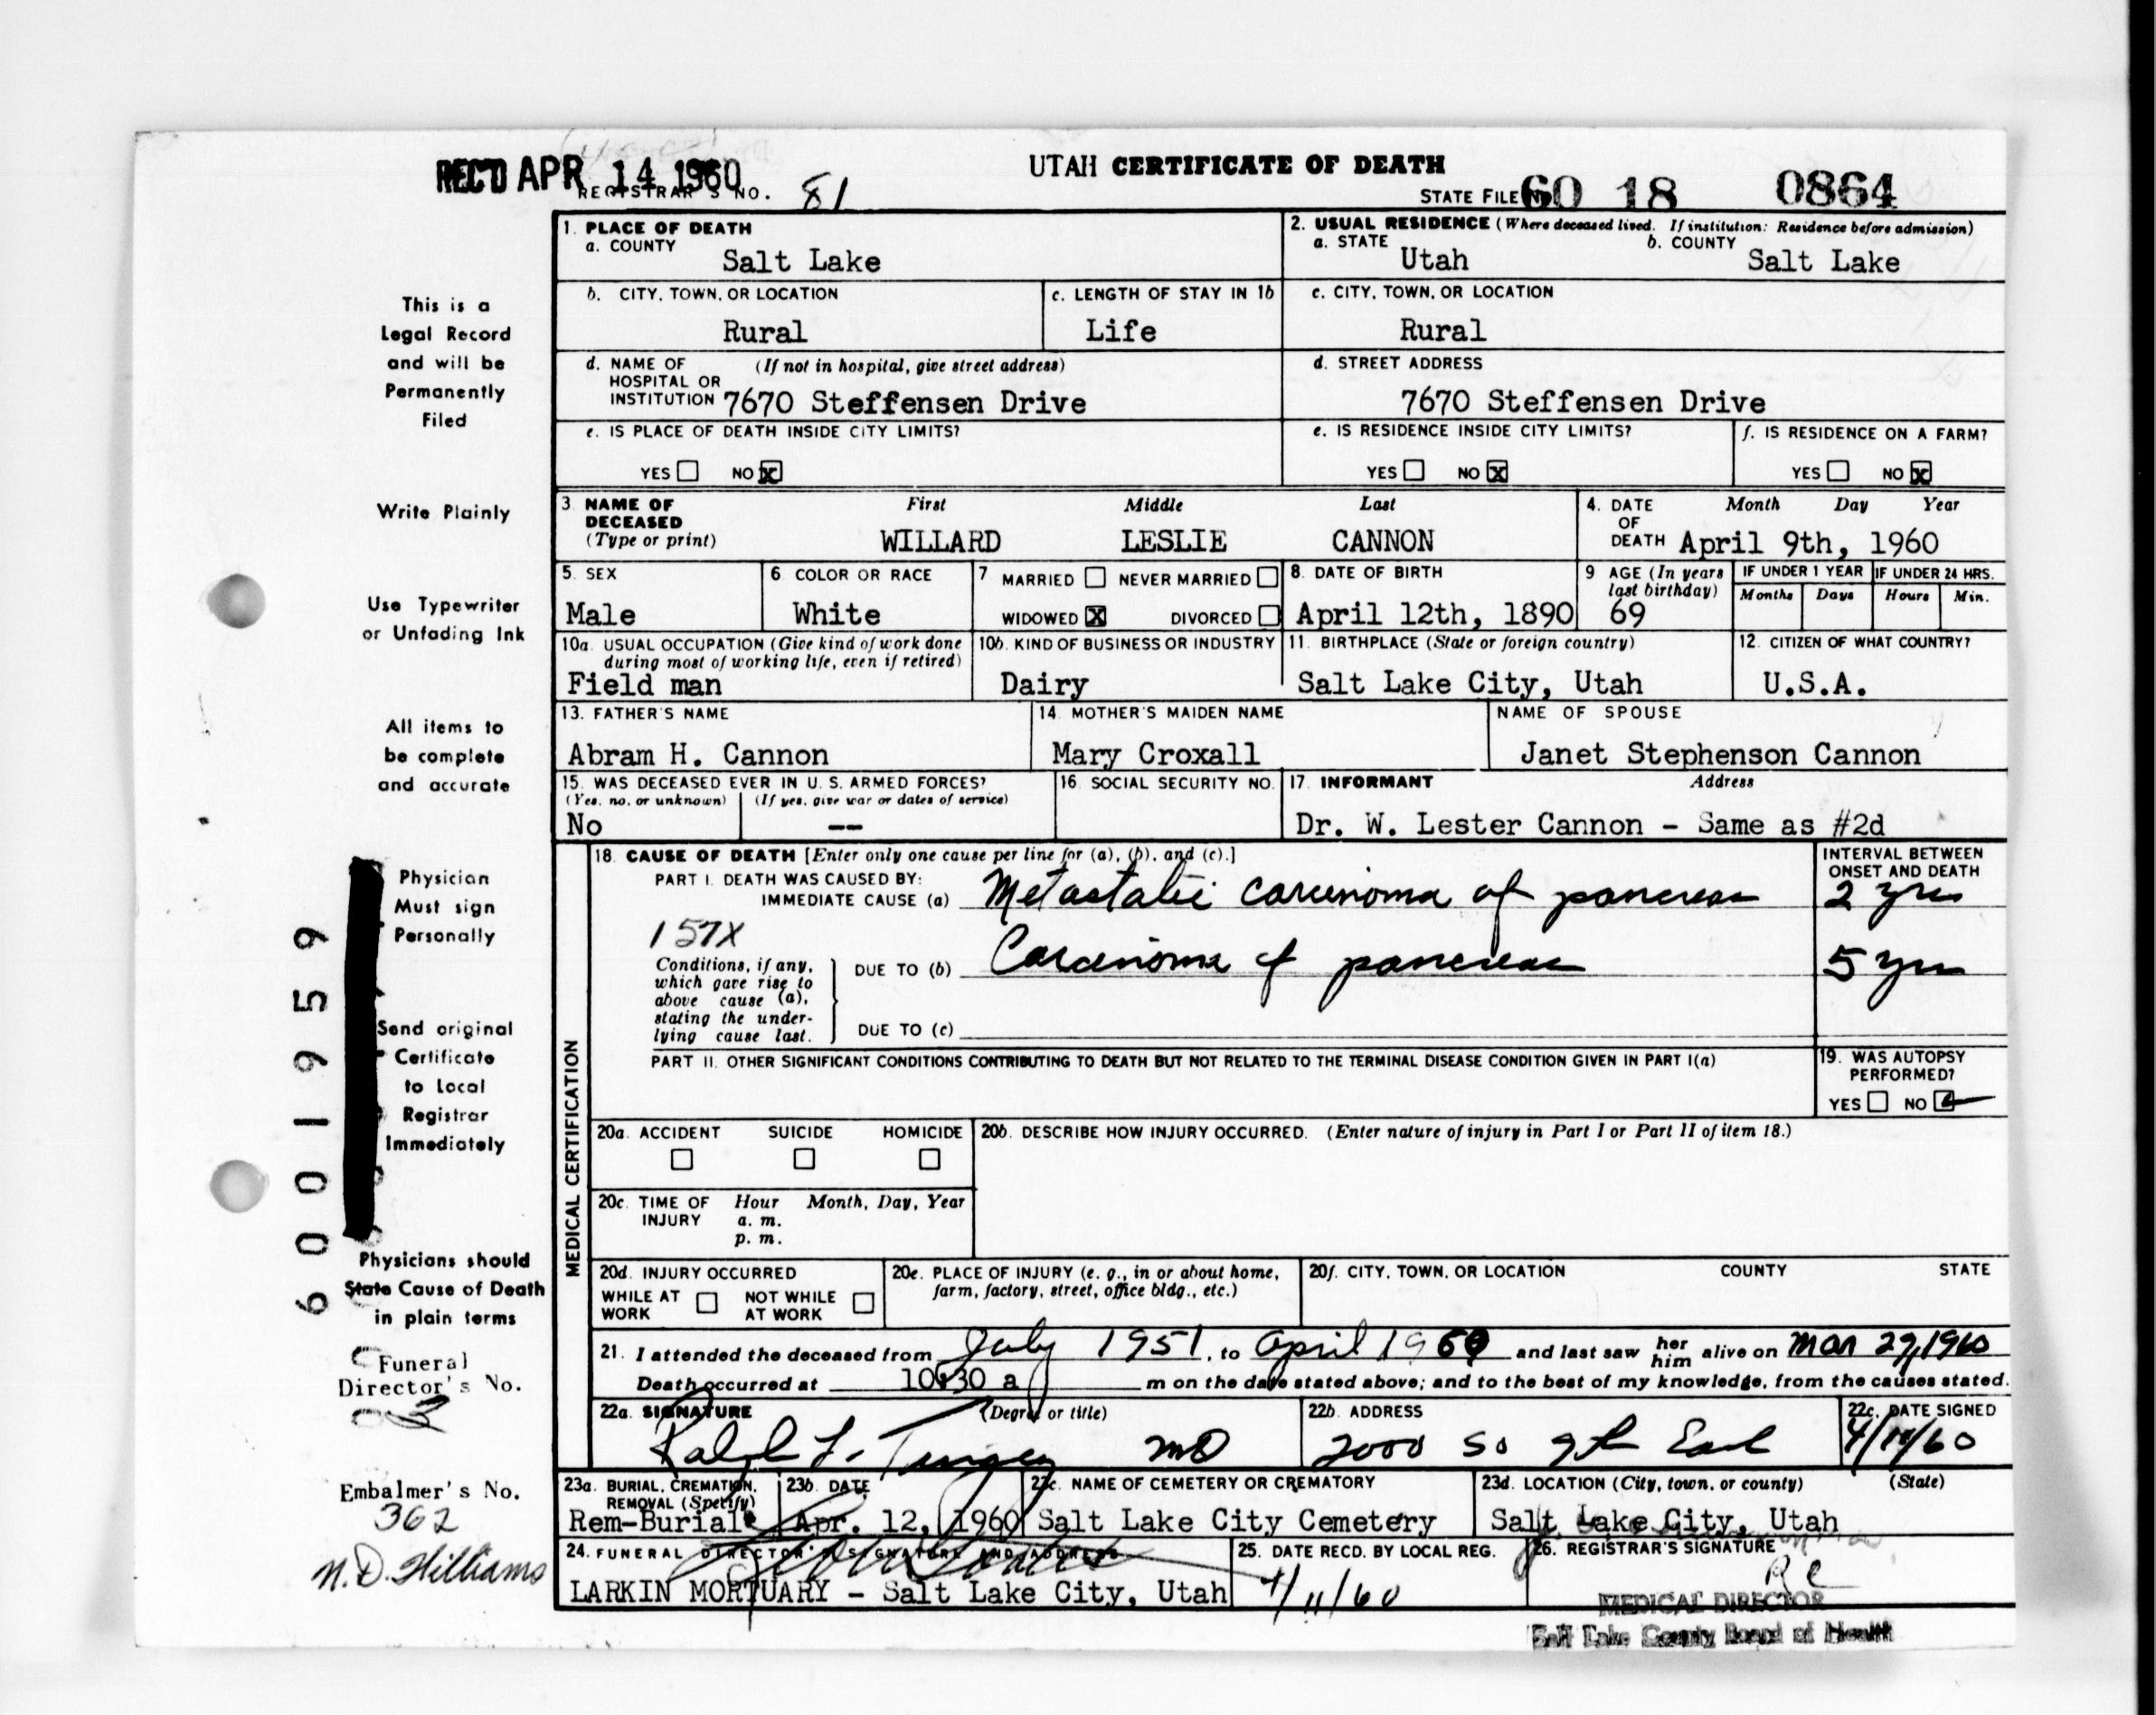 REC'D APR 14 1960
REGISTRAR'S NO. 81
UTAH CERTIFICATE OF DEATH
STATE FILE NO. 60 18 0864
This is a
Legal Record
and will be
Permanently
Filed
Write Plainly
Use Typewriter
or Unfading Ink
All items to
be complete
and accurate
Physician
Must sign
Personally
Send original
Certificate
to Local
Registrar
Immediately
Physicians should
State Cause of Death
in plain terms
Funeral
Director's No.
Embalmer's No.
362
N.D. Williams
6001959
1. PLACE OF DEATH
a. COUNTY
Salt Lake
2. USUAL RESIDENCE (Where deceased lived. If institution: Residence before admission)
a. STATE b. COUNTY
Utah Salt Lake
b. CITY, TOWN, OR LOCATION
Rural
c. LENGTH OF STAY IN 1b
Life
c. CITY, TOWN, OR LOCATION
Rural
d. NAME OF (If not in hospital, give street address)
HOSPITAL OR
INSTITUTION 7670 Steffensen Drive
d. STREET ADDRESS
7670 Steffensen Drive
e. IS PLACE OF DEATH INSIDE CITY LIMITS?
YES NO X
e. IS RESIDENCE INSIDE CITY LIMITS?
YES NO X
f. IS RESIDENCE ON A FARM?
YES NO X
3 NAME OF First Middle Last
DECEASED
(Type or print) WILLARD LESLIE CANNON
4. DATE Month Day Year
OF
DEATH April 9th, 1960
5. SEX
Male
6 COLOR OR RACE
White
7 MARRIED NEVER MARRIED
WIDOWED X DIVORCED
8. DATE OF BIRTH
April 12th, 1890
9 AGE (In years
last birthday)
69
IF UNDER 1 YEAR
Months Days
IF UNDER 24 HRS.
Hours Min.
10a. USUAL OCCUPATION (Give kind of work done
during most of working life, even if retired)
Field man
10b. KIND OF BUSINESS OR INDUSTRY
Dairy
11. BIRTHPLACE (State or foreign country)
Salt Lake City, Utah
12. CITIZEN OF WHAT COUNTRY?
U.S.A.
13. FATHER'S NAME
Abram H. Cannon
14. MOTHER'S MAIDEN NAME
Mary Croxall
NAME OF SPOUSE
Janet Stephenson Cannon
15. WAS DECEASED EVER IN U. S. ARMED FORCES?
(Yes, no, or unknown) (If yes, give war or dates of service)
No --
16. SOCIAL SECURITY NO.
17. INFORMANT Address
Dr. W. Lester Cannon - Same as #2d
MEDICAL CERTIFICATION
18. CAUSE OF DEATH [Enter only one cause per line for (a), (b), and (c).]
PART I. DEATH WAS CAUSED BY:
IMMEDIATE CAUSE (a) Metastatic carcinoma of pancreas
INTERVAL BETWEEN
ONSET AND DEATH
2 yrs
157X
Conditions, if any,
which gave rise to
above cause (a),
stating the under-
lying cause last.
DUE TO (b) Carcinoma of pancreas
5 yrs
DUE TO (c)
PART II. OTHER SIGNIFICANT CONDITIONS CONTRIBUTING TO DEATH BUT NOT RELATED TO THE TERMINAL DISEASE CONDITION GIVEN IN PART I(a)
19. WAS AUTOPSY
PERFORMED?
YES NO
20a. ACCIDENT SUICIDE HOMICIDE
20b. DESCRIBE HOW INJURY OCCURRED. (Enter nature of injury in Part I or Part II of item 18.)
20c. TIME OF Hour Month, Day, Year
INJURY a. m.
p. m.
20d. INJURY OCCURRED
WHILE AT NOT WHILE
WORK AT WORK
20e. PLACE OF INJURY (e. g., in or about home,
farm, factory, street, office bldg., etc.)
20f. CITY, TOWN, OR LOCATION COUNTY STATE
21. I attended the deceased from July 1951, to April 1960 and last saw her him alive on Mar 27, 1960
Death occurred at 10:30 a m on the date stated above; and to the best of my knowledge, from the causes stated.
22a. SIGNATURE (Degree or title)
Ralph MD
22b. ADDRESS
2000 So 9th East
22c. DATE SIGNED
60
23a. BURIAL, CREMATION,
REMOVAL (Specify)
Rem-Burial
23b. DATE
Apr. 12, 1960
23c. NAME OF CEMETERY OR CREMATORY
Salt Lake City Cemetery
23d. LOCATION (City, town, or county) (State)
Salt Lake City, Utah
24. FUNERAL DIRECTOR'S SIGNATURE AND ADDRESS
LARKIN MORTUARY - Salt Lake City, Utah
25. DATE RECD. BY LOCAL REG.
4/11/60
26. REGISTRAR'S SIGNATURE
MEDICAL DIRECTOR
Salt Lake County Board of Health